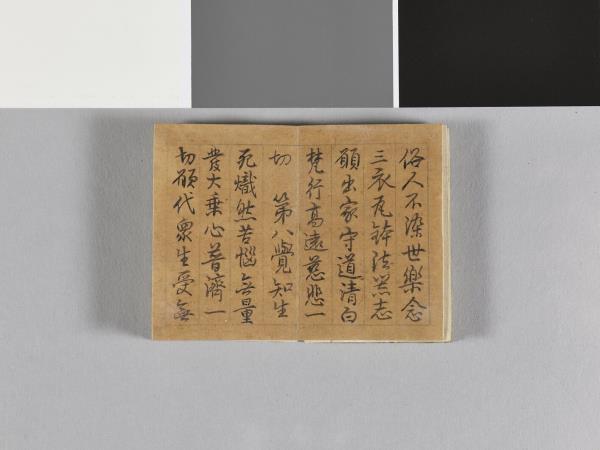 俗人不染世樂念
三衣瓦鉢法器志
願出家守道清白
梵行高遠慈悲一
切 第八覺知生
死熾然苦惱無量
發大乘心普濟一
切願代衆生受無